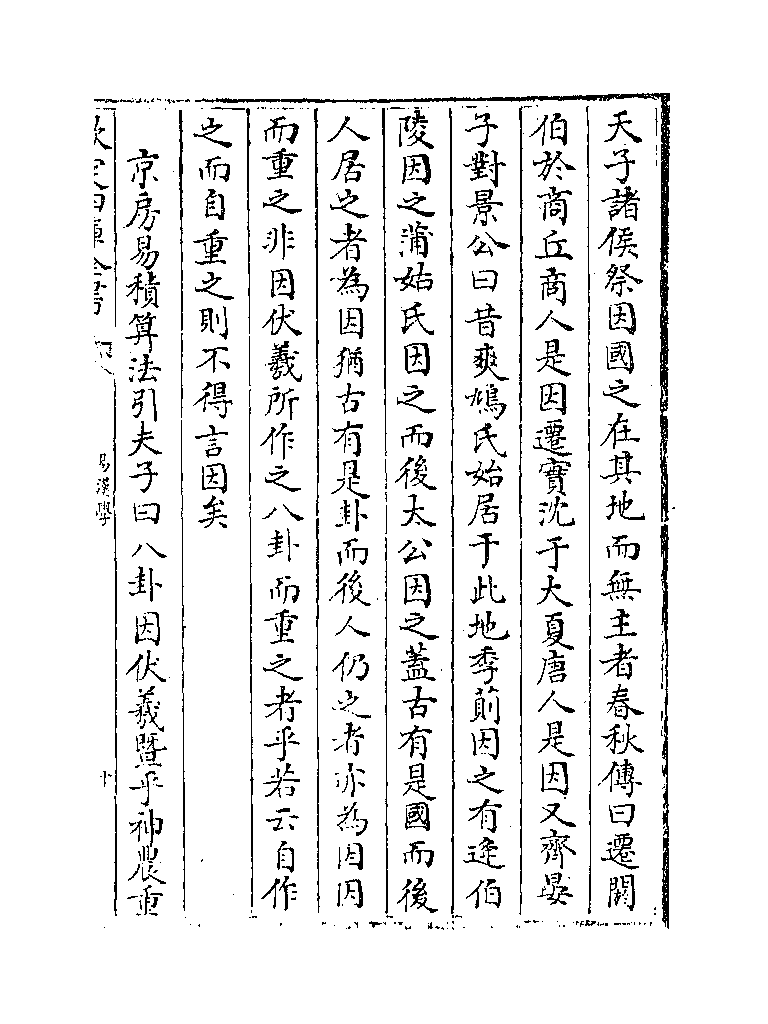 天子諸侯祭因國之在其地而無主者春秋傳曰遷閼
伯於商丘商人是因遷實沈于大夏唐人是因又齊晏
子對景公曰昔爽鳩氏始居于此地季萴因之有逄伯
陵因之蒲姑氏因之而後太公因之蓋古有是國而後
人居之者為因猶古有是卦而後人仍之者亦為因因
而重之非因伏羲所作之八卦而重之者乎若云自作
之而自重之則不得言因矣
京房易積算法引夫子曰八卦因伏羲暨乎神農重
欽定四庫全書
易漢學
十